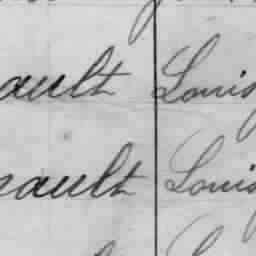 ault Louis
ault Louis